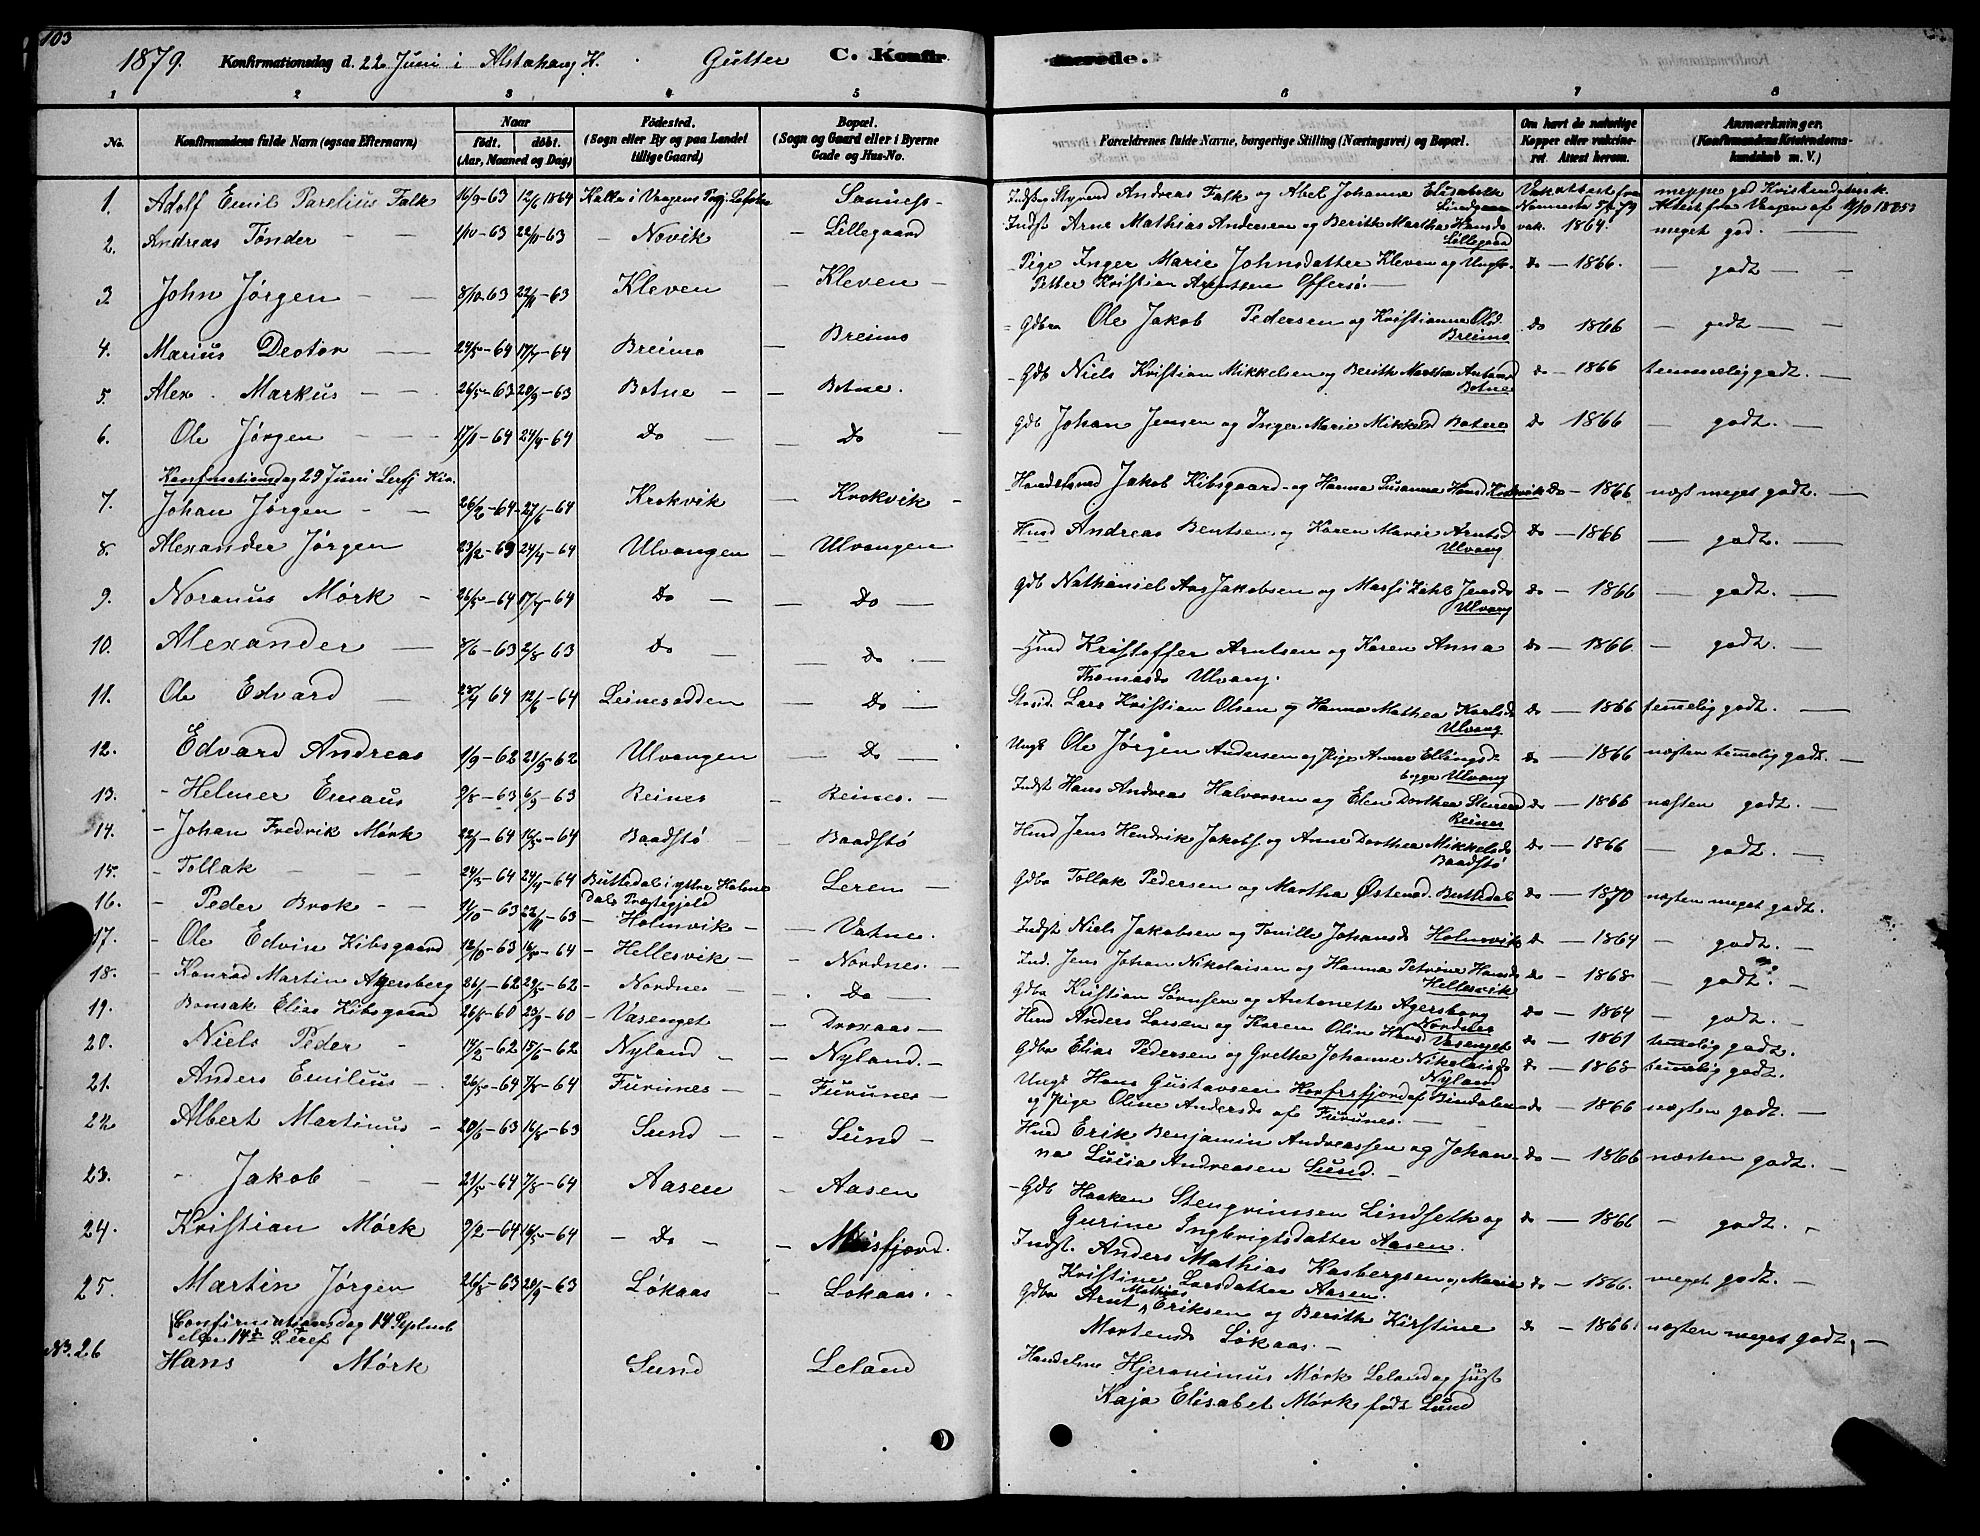 103
1879. Konfirmationsdag d. 22 Juni i Alstahaug K. Gutter C. Konfirmerede.
1 2 3 4 5 6 7 8
No. Konfirmandens fulde Navn (ogsaa Efternavn) Naar født. døbt. (Aar, Maaned og Dag) Födested. (Sogn eller By og paa Landet tillige Gaard) Bopæl. (Sogn og Gaard eller i Byerne Gade og Hus-No. Forældrenes fulde Navne, borgerlige Stilling (Næringsvei) og Bopæl. Om havt de naturlige Kopper eller vakcineret. Attest herom. Anmærkninger. (Konfirmandens Kristendomskundskab m. V.)
1. Adolf Emil Parelius Falk 16/9-63 12/6 1864 Kalle i Vaagens Pgj. Sannes Andreas Falk og Abel Johanna Elisabeth
2. Andreas Tønder 1/10-63 22/11-63 Novik Lillegaard Indst Arne Mathias Andersen og Berith Martha Hansd Lillegaard vak. 1864. meget god.
3. John Jørgen 8/10-63 22/11-63 Kleven Kleven Pige Inger Marie Johnsdatter Kleven og Ungk. do 1866. godt
Petter Kristian Arntsen Offersø.
4. Marius Deotor 24/5-64 17/7-64 Breimo Breimo Gdbr Ole Jakob Pedersen og Kristianna Olsd. Breimo do 1866 godt
5. Alex. Markus 26/5-63 20/9-63 Botne Botne. Gdb Niels Kristian Mikkelsen og Berith Martha Botne do 1866 temmelig godt.
6. Ole Jørgen 17/1-64 24/4-64 Do Do Gdb Johan Jensen og Inger Marie Mikkelsd Botne do 1866 godt.
Konfirmationsdag 29 Juni
7. Johan Jørgen 26/2-64 27/6-64 Krokvik Krokvik Jakob Kibsgaard og Hanna Susanna Hansd Krokvik do 1866 næst meget godt.
8. Alexander Jørgen 24/4-64 Ulvangen Ulvangen Hmd Andreas Bentsen og Karen Marie Arntsd Ulvang do 1866 godt.
9. Noranus Mørk 26/5-64 17/7-64 Do Do Gdb Nathaniel Aas Jakobsen og Massi Zahl Jensd Ulvang do 1866 godt.
10. Alexander 8/6-63 2/8-63 Do Do Hmd Kristoffer Arntsen og Karen Anna do 1866. godt.
Thomasd. Ulvang.
11. Ole Edvard 12/6-64 Leinesodden Do Lars Kristian Olsen og Hanna Mathea Karlsd. Ulvang do 1866 temelig godt.
12. Edvard Andreas 1/9-62 21/9-62 Ulvangen Do Ungk Ole Jørgen Andersen og Pige Anne Ellingsd. begge Ulvang do 1866 næsten temelig godt.
13. Helmer Emaus 9/8-63 6/9-63 Reines Reines. Indst Hans Andreas Halvorsen og Elen Dorthea Reines do 1866 næsten godt.
14. Johan Fredrik Mørk 22/1-64 16/5-64 Baadstø Baadstø Hmd Jens Hendrik Jakobs. og Anne Dorthea Mikkelsd. Baadstø do 1866 godt.
15. Tollak 24/3-64 24/4-64 Buttedal i ytre Holmedals Præstegjeld Leren Gdbr Tollak Pedersen og Martha Østensd. Buttedal do 1870 næsten meget godt.
16. Peder Brok 63 22/11-63 Holmvik Vatne. Indst Niels Jakobsen og Tomille Johansd. Holmvik do 1864 godt.
17. Ole Edvin Kibsgaard 12/10-63 64 Hellesvik Nordnes. Ind. Jens Johan Nikolaisen og Hanna Petrine Hansd. Hellesvik do 1868 godt.
18. Konrad Martin Agersberg 26/1-62 29/5-62 Nordnes Do Gdbr Kristian Sørensen og Antonette Agersborg Nordnes do 1864 godt.
19. Bonsak Elias Kibsgaard 60 23/9-60 Vasenget Hmd Anders Lassen og Karen Oline Hansd Vasenget do 1861 temelig godt.
20. Niels Peder 14/2-62 15/6-62 Nyland Nyland. Gdbr Elias Pedersen og Grethe Johanne Nikolaisd. Nyland do 1865 temelig godt.
21. Anders Emilius 26/5-64 7/8-64 Furunes Furunes Ungk Hans Gustavsen af Bindalen do 1866 næsten godt.
og Pige Oline Andersd. af Furunes.
22. Albert Martinus 20/6-63 16/8-63 Sund Sund Hmd Erik Benjamin Andreassen og Johan- do 1866 næsten godt.
na Lucia Andreasen Sund.
23. Jakob 21/5-64 7/8-64 Aasen Aasen Gdb Haaken Stengrimsen Lindseth og do 1866 godt.
Gurine Ingbrigtsdatter Aasen.
24. Kristian Mørk 9/2-64 16/5-64 Do Meisfjord. Indst. Anders Mathias Kasbergsen og Marie do 1866. meget godt.
Kristine Larsdatter Aasen.
25. Martin Jørgen 26/8-63 20/9-63 Løkaas Løkaas. Gdbr Arnt Mathias Eriksen og Berith Kirstine do 1866. næsten meget godt.
Mortensd. Løkaas.
Confirmationsdag 14 Septemb
No. 26 Hans Mørk Sund Leland Hjeronimus Mørk Leland og Hust
Kaja Elisabet Mørk født Lund